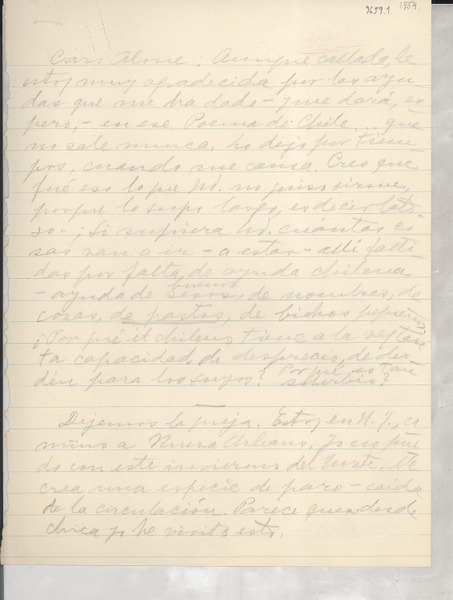 3659.1 1954
Caro Alone: Aunque callada, le
estoy muy agradecida por las ayu-
das que me ha dado - y me dará, es
pero, - en ese Poema de Chile... que
no sale nunca. Lo dejo por tiem
pos, cuando me cansa. Creo que
fué eso lo que Ud. no quiso
porque lo supo largo, es decir
so. - ¡Si supiera Ud. cuantas co
sas van a ir - a estar - allí falli
das por falta de ayuda chilena
buenos
- ayuda de seres, de nombres, de
cosas, de pastos, de bichos pequeños,
¡Por qué el chileno tiene a la vez tan
ta capacidad de desprecio, de des-
dén para los suyos! Por qué es tan
soberbio?
Dejemos la queja. Estoy en N.Y., ca
mino a Nueva Orleans. Yo no pue
do con este invierno del Norte. Me
crea una especie de paro - caída
de la circulación. Parece que desde
chica yo he vivido esto.